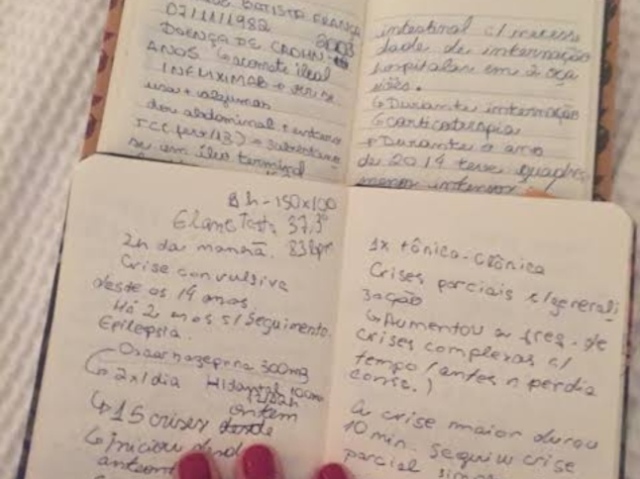 BATISTA FRANÇA
07/11/1982 2003
DOENÇA DE CROHN
ANOS acomete ileal
INFLIXIMAB
usa + algumas
dor abdominal +
TCC (13) =
se em íleo terminal
intestinal c/ necessi
dade de internação
hospitalar em 2 oca
siões.
↳ Durante internação
↳ corticoterapia
+ Durante o ano
de 2014 teve quadros
menos intensos
8h - 150x100
37,3°
2h da manhã. 83bpm
Crise convulsiva
deste os 14 anos.
Há 2 anos s/ seguimento.
Epilepsia.
Oxcarbazepina 300mg
↳ 2x1dia Hidantal 100mg
12/12h
ontem
↳ 15 crises desde
↳ iniciou
anteont
1x tônica-clônica
Crises parciais c/generali
zação
↳ Aumentou a freq. de
crises complexas c/
tempo (antes n perdia
consc.)
A crise maior durou
10 min. seguiu crise
parcial